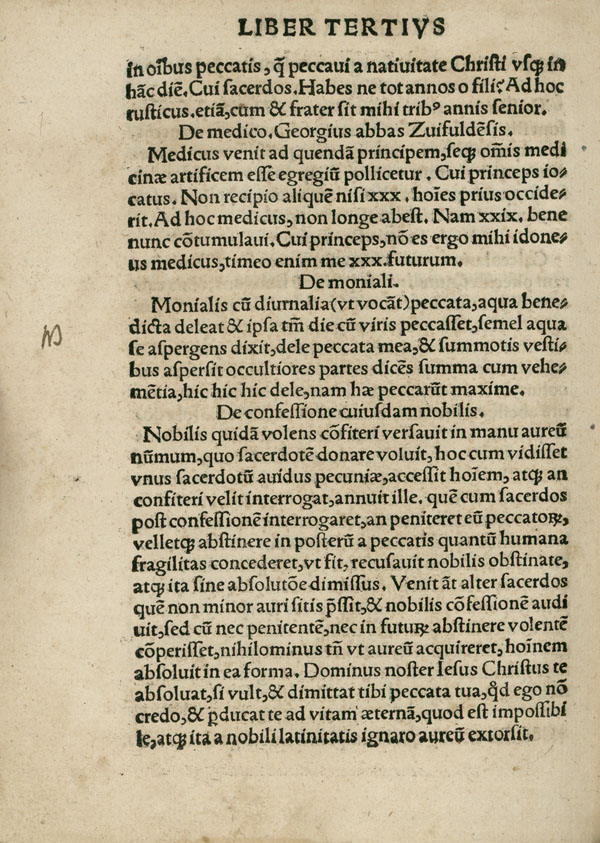 LIBER TERTIVS
in oību​s peccatis, q̃ peccaui a natiuitate Christi vsq​ꝫ in
hāc diē. Cui sacerdos. Habes ne tot annos o fili? Ad hoc
rusticus. etiā, cum & frater sit mihi tribꝰ annis senior.
De medico. Georgius abbas Zuifuldēsis.
Medicus venit ad quendā principem, seqꝫ om̄is medi
cinæ artificem esse egregiū pollicetur. Cui princeps io⸗
catus. Non recipio aliquē nisi xxx. hoīes prius occide⸗
rit. Ad hoc medicus, non longe abest. Nam xxix. bene
nunc cōtumulaui. Cui princeps, nō es ergo mihi idone⸗
us medicus, timeo enim me xxx. futurum.
De moniali.
Monialis cū diurnalia (vt vocāt) peccata, aqua bene⸗
dicta deleat & ipsa tm̄ die cū viris peccasset, semel aqua
se aspergens dixit, dele peccata mea, & summotis vesti⸗
bus aspersit occultiores partes dicēs summa cum vehe⸗
mētia, hic hic hic dele, nam hæ peccarūt maxime.
De confessione cuiusdam nobilis.
Nobilis quidā volens cōfiteri versauit in manu aureū
nūmum, quo sacerdotē donare voluit, hoc cum vidisset
vnus sacerdotū auidus pecuniæ, accessit hoīem, atqꝫ an
confiteri velit interrogat, annuit ille. quē cum sacerdos
post confessionē interrogaret, an peniteret eū peccatoꝝ,
velletqꝫ abstinere in posterū a peccatis quantū humana
fragilitas concederet, vt fit, recusauit nobilis obstinate,
atqꝫ ita sine absolutōe dimissus. Venit āt alter sacerdos
quē non minor auri sitis p̄ssit, & nobilis cōfessionē audi
uit, sed cū nec penitentē, nec in futuꝝ abstinere volentē
cōperisset, nihilominus tn̄ vt aureū acquireret, hoīnem
absoluit in ea forma. Dominus noster Iesus Christus te
absoluat, si vult, & dimittat tibi peccata tua, qd̓ ego nō
credo, & ꝑducat te ad vitam æternā, quod est impossibi
le, atqꝫ ita a nobili latinitatis ignaro aureū extorsit.